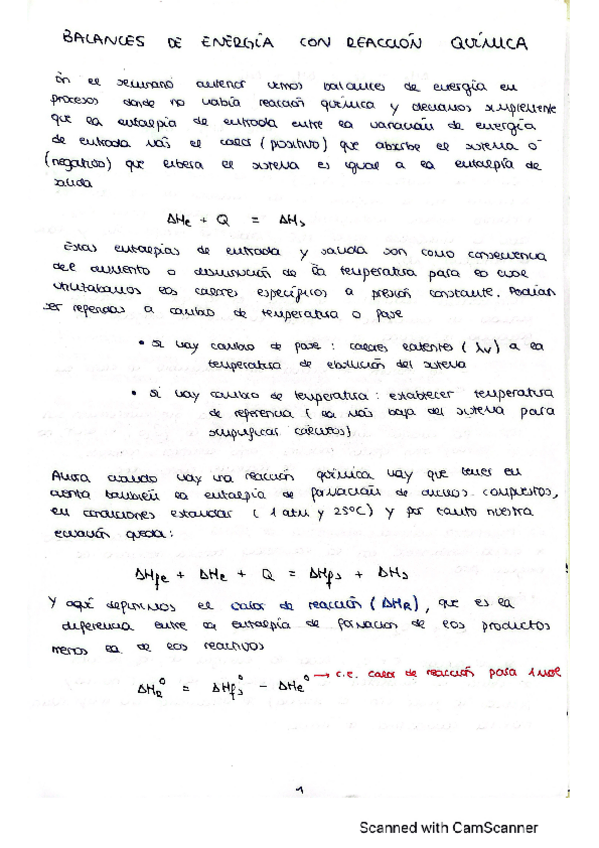 BALANCES DE ENERGÍA CON REACCIÓN QUÍMICA
En el seminario anterior vemos balances de energía en
procesos donde no había reacción química y decíamos simplemente
que la entalpía de entrada entre la variación de energía
de entrada más el calor (positivo) que absorbe el sistema o
(negativo) que libera el sistema es igual a la entalpía de
salida
ΔHe + Q = ΔHs
Estas entalpías de entrada y salida son como consecuencia
del aumento o disminución de la temperatura para lo cual
utilizábamos los calores específicos a presión constante. Podían
ser referidas a cambio de temperatura o fase
• si hay cambio de fase : calores latentes (λv) a la
temperatura de ebullición del sistema
• si hay cambio de temperatura : establecer temperatura
de referencia ( la más baja del sistema para
simplificar cálculos)
Ahora cuando hay una reacción química hay que tener en
cuenta también la entalpía de formación de dichos compuestos,
en condiciones estandar ( 1 atm y 25ºC) y por tanto nuestra
ecuación queda :
ΔHfe + ΔHe + Q = ΔHfs + ΔHs
Y aquí definimos el calor de reacción (ΔHR), que es la
diferencia entre la entalpía de formación de los productos
menos la de los reactivos
ΔHR⁰ = ΔHfs⁰ - ΔHe⁰ → c.e. calor de reacción para 1 mol
1
Scanned with CamScanner